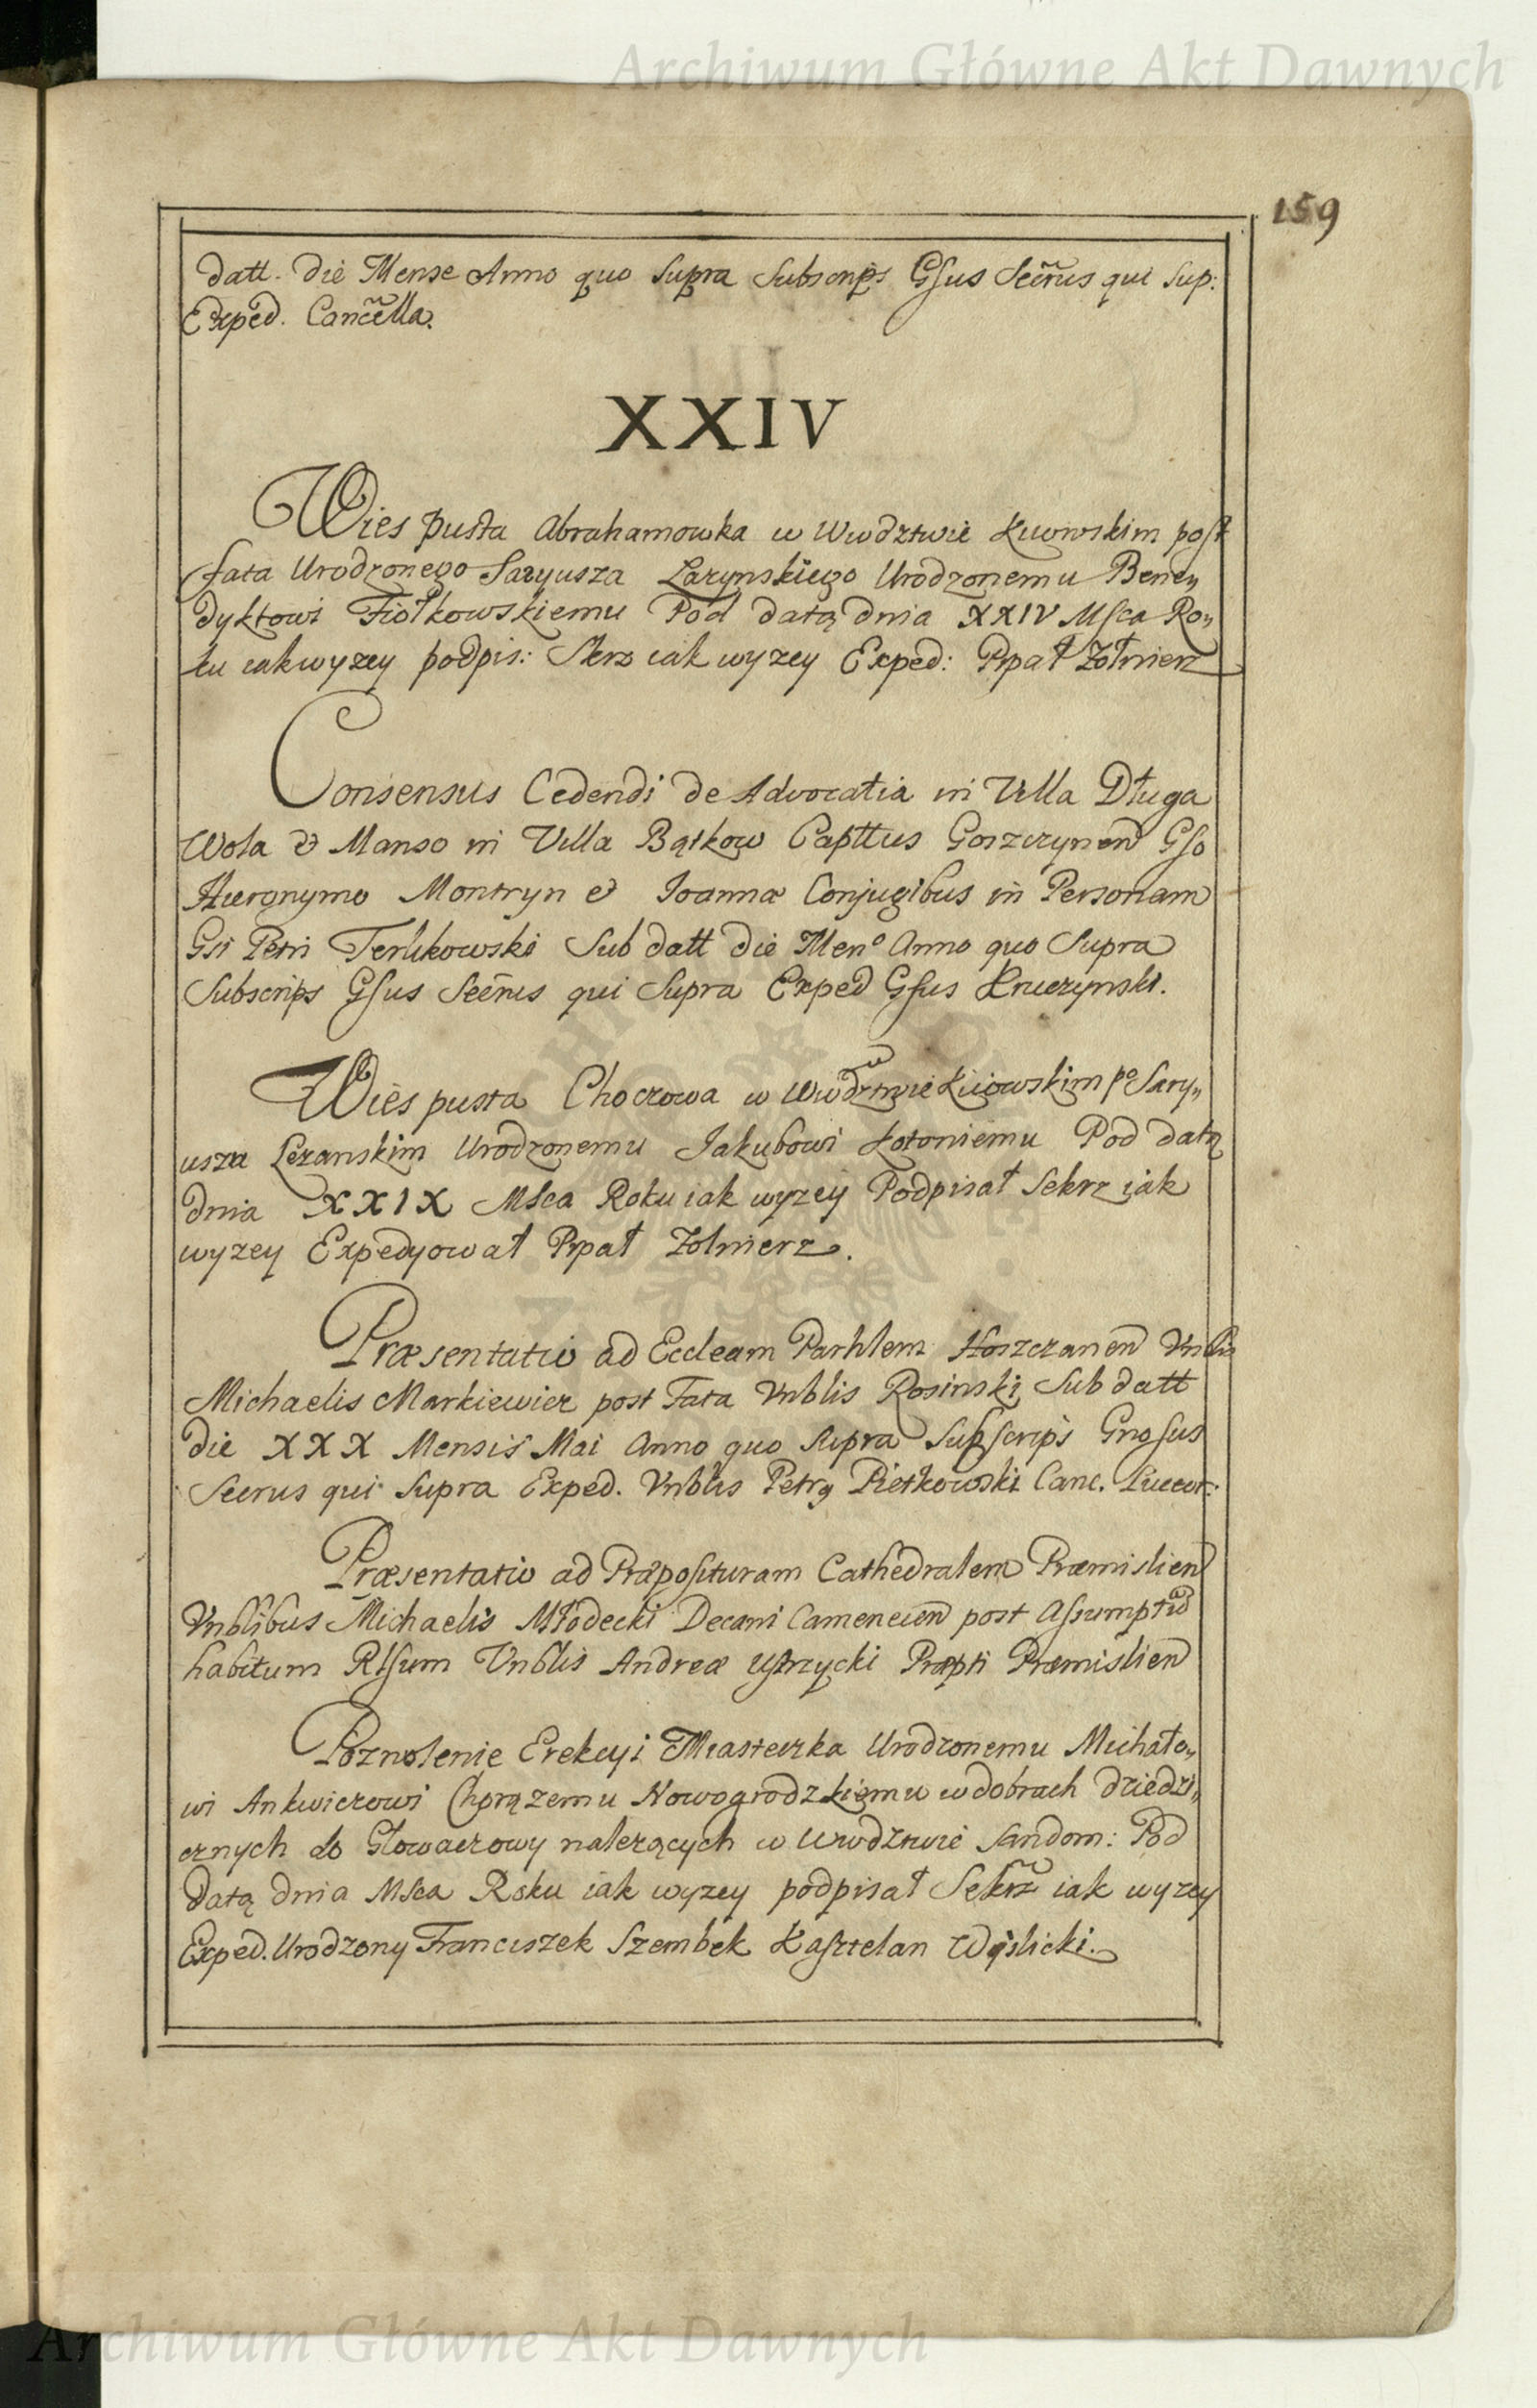 Archiwum Główne Akt Dawnych
159
datt. die Mense Anno quo Supra Subscrips Gsus Secrus qui Sup:
Exped. Cancella.
XXIV
Wies pusta Abrahamowka w Wwdztwie Kiiowskim post
fata Urodzonego Saryusza Lazynskiego Urodzonemu Bene„
dyktowi Fiołkowskiemu Pod datą dnia XXIV Msca Ro„
ku iak wyzey podpis: Skrz iak wyzey Exped: Ppał Zołnierz
Consensus Cedendi de Advocatia in Villa Długa
Wola & Manso in Villa Bątkow Capttus Goszczynen Gso
Hieronymo Montryn & Joanna Conjugibus in Personam
Gsi Petri Terlikowski Sub datt die Men° Anno quo Supra
Subscrips Gsus Secrus qui Supra Exped Gsus Kruczynski.
Wies pusta Choczowa w Wwdztwie Kiiowskim p° Sary„
uszu Lezanskim Urodzonemu Jakubowi Kotoniemu Pod datą
dnia XXIX Msca Roku iak wyzey Podpisał Sekrz iak
wyzey Expedyował Ppał Zolnierz.
Præsentatio ad Eccleam Parhlem Hoszczanen Vnblis
Michaelis Markiewicz post Fata Vnblis Rosinski Sub datt
die XXX Mensis Mai Anno quo Supra Subscrips Gnosus
Secrus qui Supra Exped. Vnblis Petrq Piętkowski Canc. Luceor:
Præsentatio ad Præposituram Cathedralem Præmislien
Vnblibus Michaelis Młodecki Decani Camenecen post Assumptũ
habitum Rlsum Vnblis Andreæ Ustrzycki Præpti Præmislien
Pozwolenie Erekcyi Miasteczka Urodzonemu Michało„
wi Ankwiczowi Chorązemu Nowogrodzkiemu w dobrach dziedzi„
cznych do Głowaczowy nalezących w Wwdztwie Sandom: Pod
datą dnia Msca Roku iak wyzey podpisał Sekrz iak wyzey
Exped. Urodzony Franciszek Szembek Kasztelan Wislicki.
Archiwum Główne Akt Dawnych